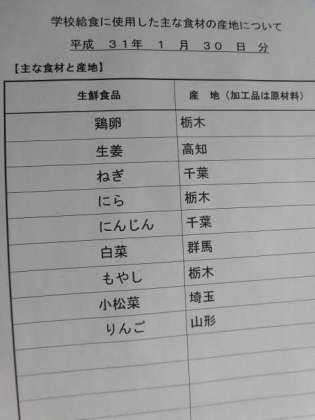 学校給食に使用した主な食材の産地について
平成 31年 1 月 30 日 分
【主な食材と産地】
生鮮食品 産 地（加工品は原材料）
鶏卵 栃木
生姜 高知
ねぎ 千葉
にら 栃木
にんじん 千葉
白菜 群馬
もやし 栃木
小松菜 埼玉
りんご 山形